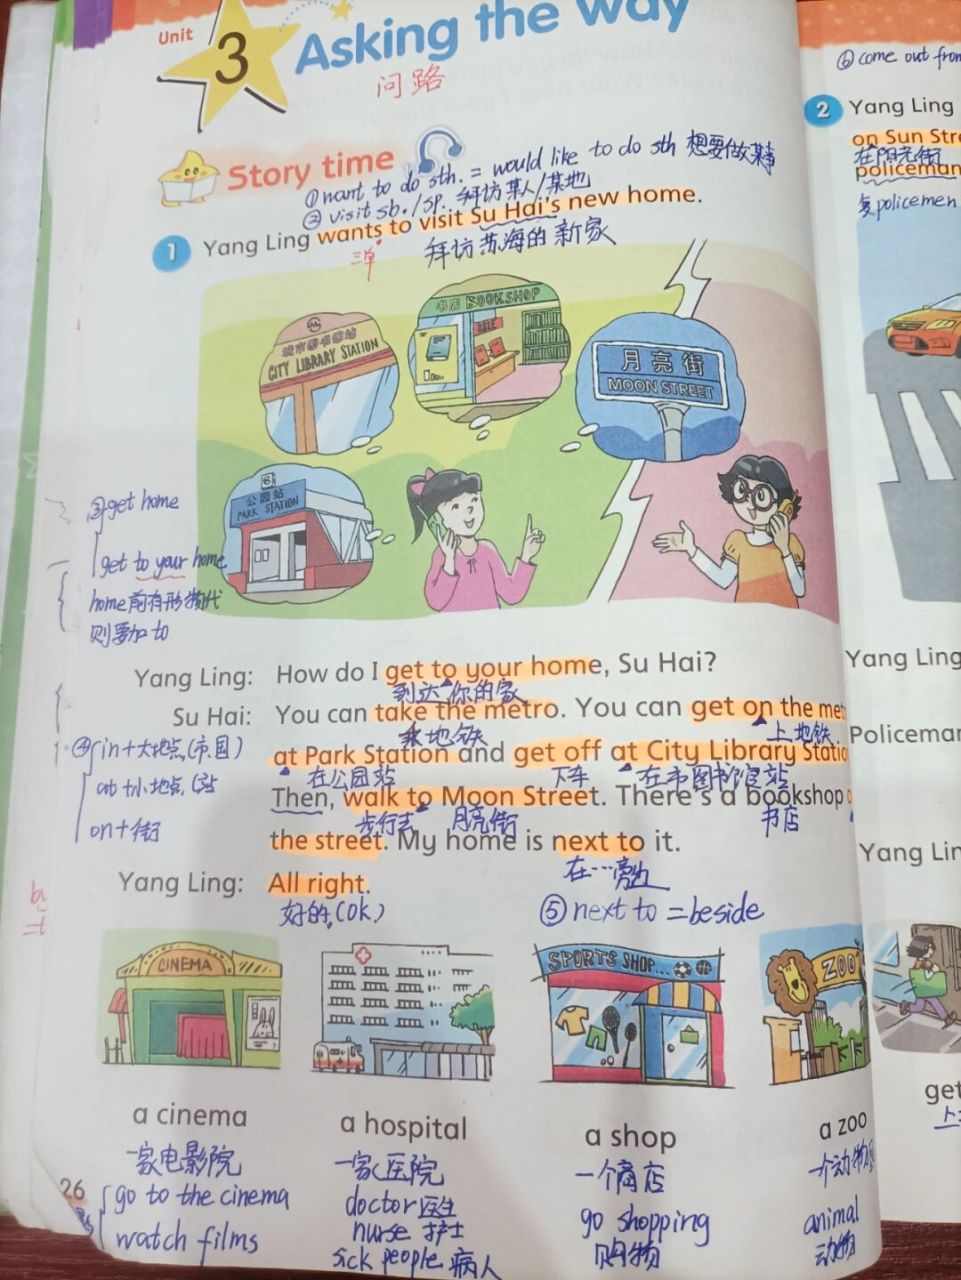 Unit 3 Asking the way
问路
Story time
①want to do sth. = would like to do sth 想要做某事
②visit sb./sp. 拜访某人/某地
1 Yang Ling wants to visit Su Hai's new home.
三单
拜访苏海的新家
城市图书馆站
CITY LIBRARY STATION
书店 BOOKSHOP
SALE
月亮街
MOON STREET
公园站
PARK STATION
③get home
get to your home
home前有形物代
则要加to
Yang Ling: How do I get to your home, Su Hai?
到达你的家
Su Hai: You can take the metro. You can get on the met
乘地铁 上地铁
at Park Station and get off at City Library Statio
在公园站 下车 在市图书馆站
Then, walk to Moon Street. There's a bookshop
步行去 月亮街 书店
the street. My home is next to it.
在…旁边
④in+大地点(市国)
at+小地点(站
on+街
Yang Ling: All right.
好的(ok)
⑤next to =beside
CINEMA
SPORTS SHOP...
ZOO
a cinema
一家电影院
go to the cinema
watch films
a hospital
一家医院
doctor医生
nurse 护士
sick people 病人
a shop
一个商店
go shopping
购物
a zoo
一个动物园
animal
动物
26
⑥come out from
2 Yang Ling
on Sun Stre
在阳光街
policeman
复policemen
Yang Ling
Policeman
Yang Lin
get